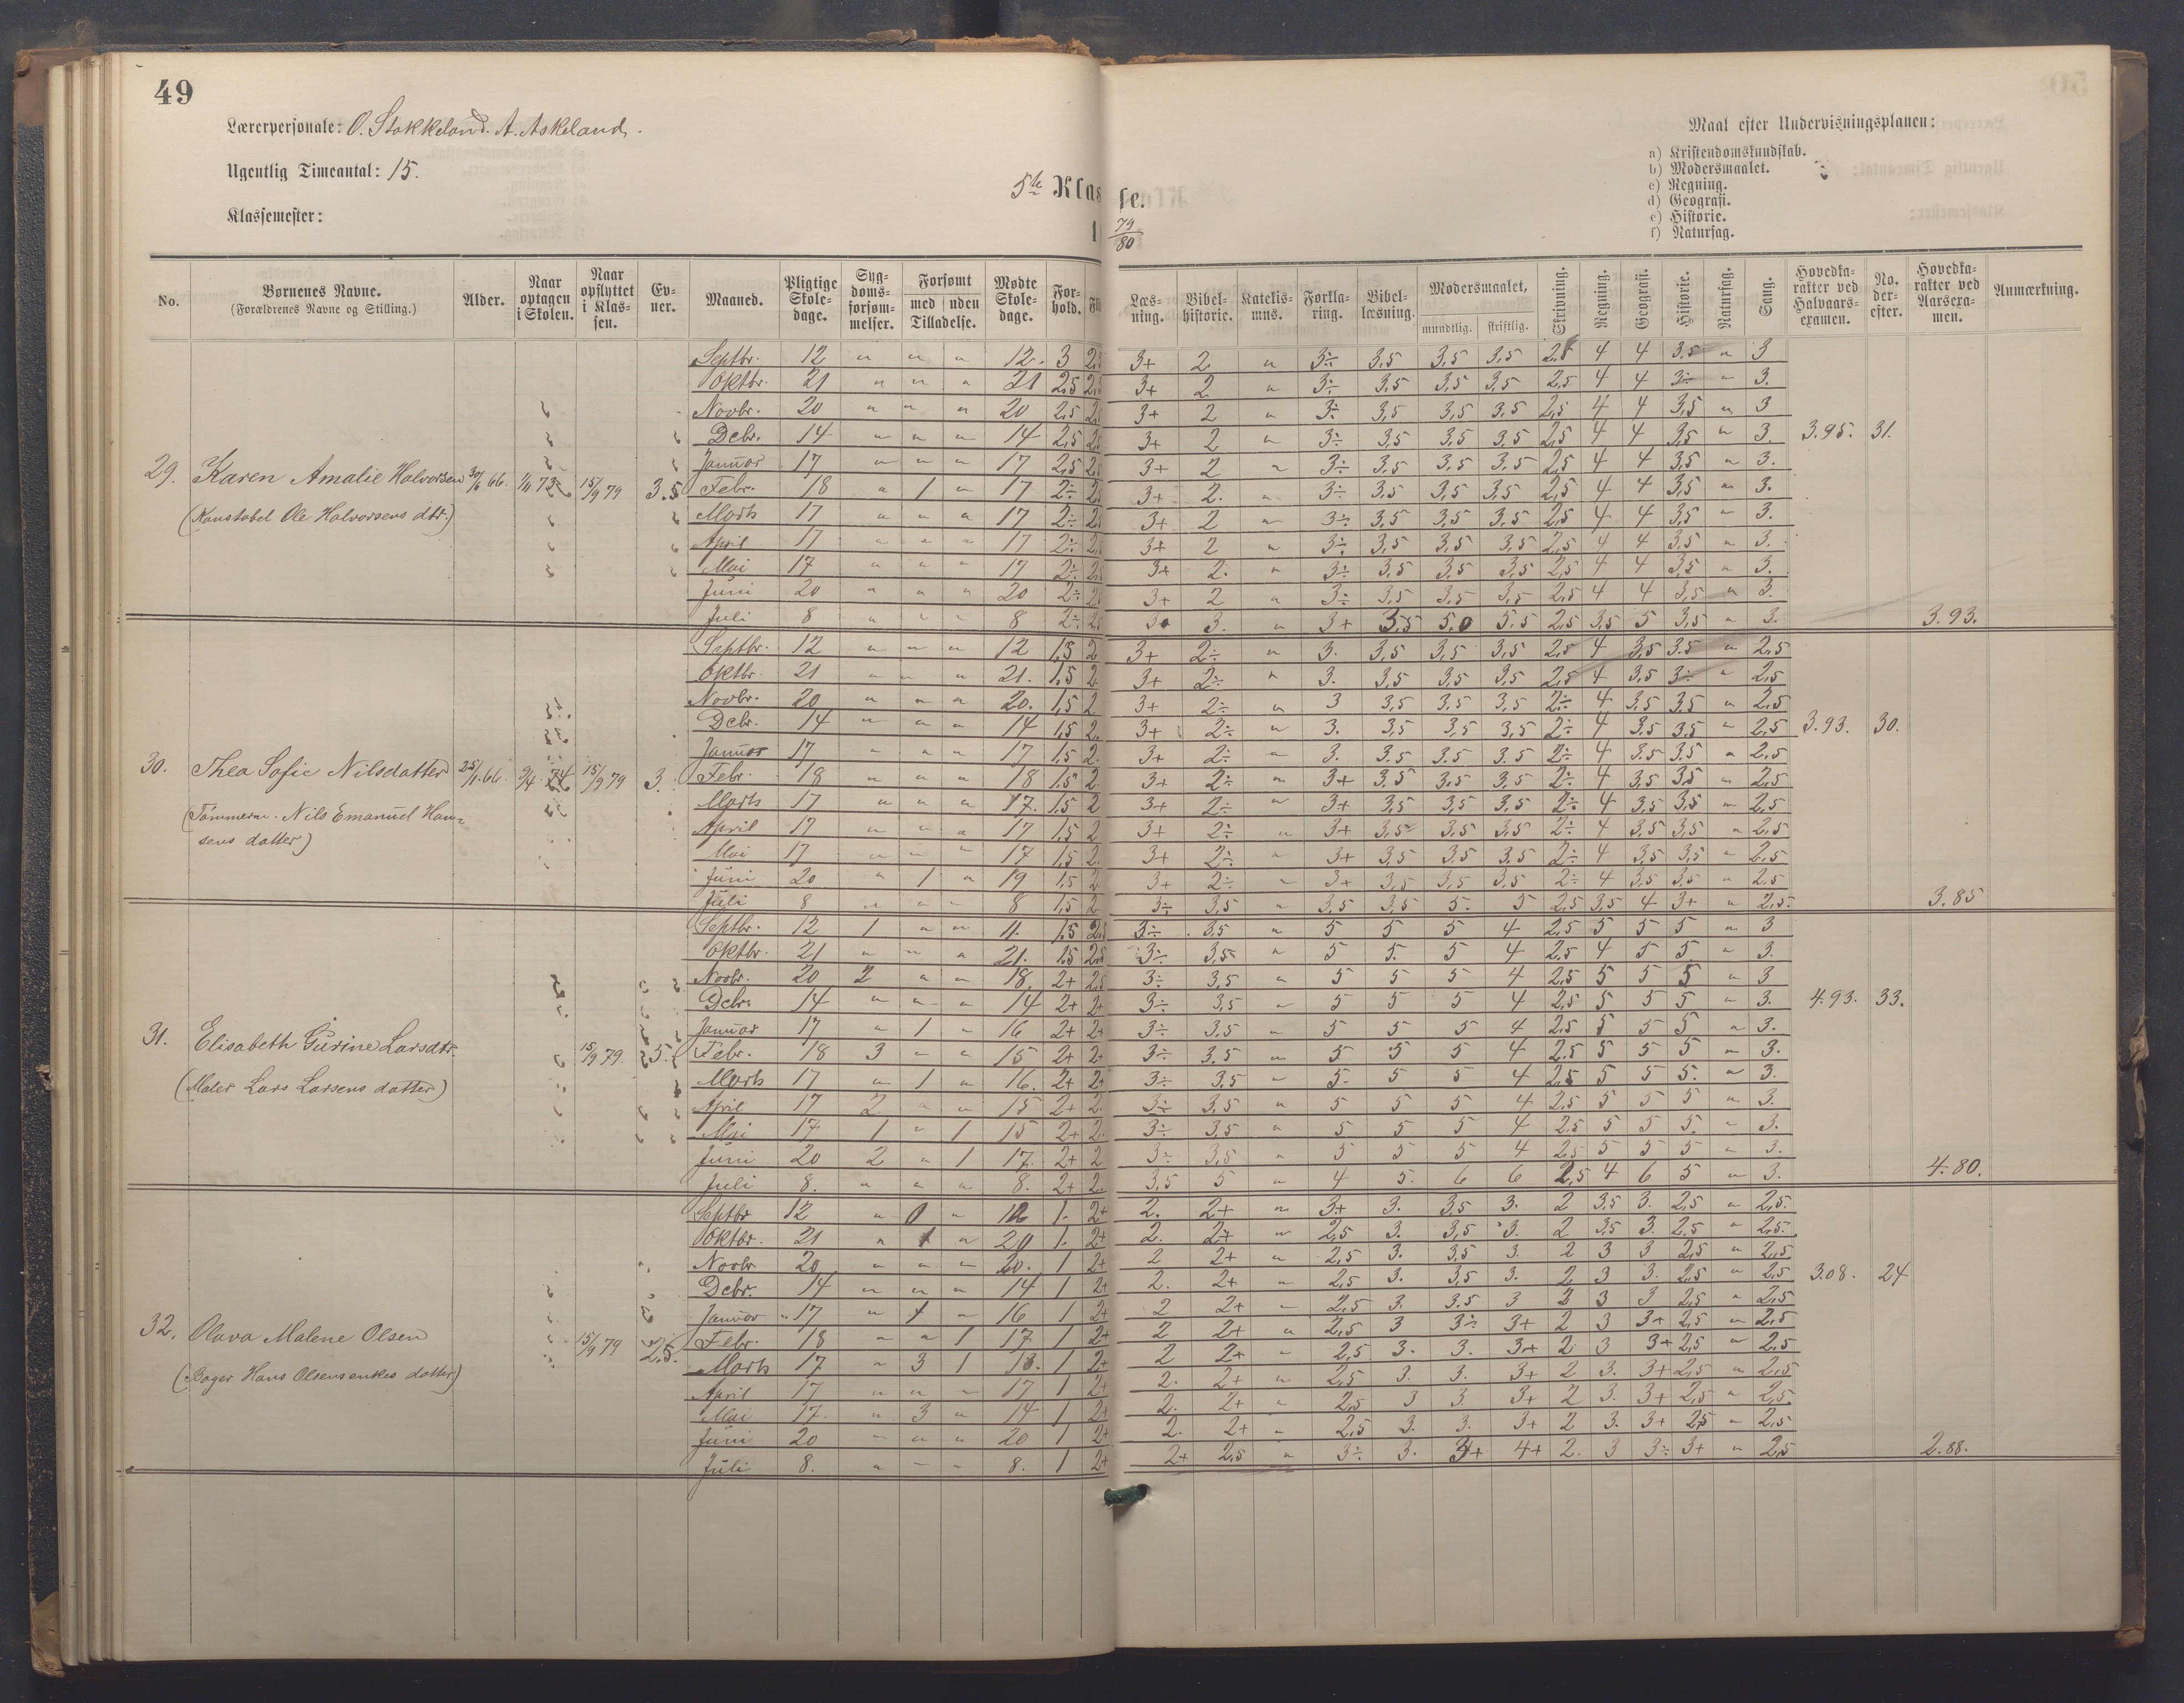 49
Lærerpersonale: O. Stokkeland. A. Askeland.
Ugentlig Timeantal: 15.
Klassemester:
5te Klasse.
79/80
Maal efter Undervisningsplanen:
a) Kristendomskundskab.
b) Modersmaalet.
c) Regning.
d) Geografi.
e) Historie.
f) Naturfag.
No. Børnenes Navne. (Forældrenes Navne og Stilling.) Alder. Naar optagen i Skolen. Naar opflyttet i Klassen. Evner. Maaned. Pligtige Skoledage. Sygdomsforsømmelser. Forsømt med uden Tilladelse. Mødte Skoledage. Forhold. Læsning. Bibelhistorie. Katekismus. Forklaring. Bibellæsning. Modersmaalet, mundtlig. skriftlig. Skrivning. Regning. Geografi. Historie. Naturfag. Sang. Hovedkarakter ved Halvaarsexamen. No. derefter. Hovedkarakter ved Aarsexamen. Anmærkning.
Septbr. 12 " " " 12. 3 2,5 3+ 2 " 3÷ 3,5 3,5 3,5 2,5 4 4 3,5 " 3
Oktbr. 21 " " " 21 2,5 2,5 3+ 2 " 3÷ 3,5 3,5 3,5 2,5 4 4 3÷ " 3.
Novbr. 20 " " " 20 2,5 2,5 3+ 2 " 3÷ 3,5 3,5 3,5 2,5 4 4 3,5 " 3
Debr. 14 " " " 14 2,5 2,5 3+ 2 " 3÷ 3,5 3,5 3,5 2,5 4 4 3,5 " 3. 3.95. 31.
Januar 17 " " " 17 2,5 2,5 3+ 2 " 3÷ 3,5 3,5 3,5 2,5 4 4 3,5 " 3.
29. Karen Amalie Halvorsen 30/6 66. 1/11 73 15/9 79 3.5 Febr. 18 " 1 " 17 2÷ 2,5 3+ 2. " 3÷ 3,5 3,5 3,5 2,5 4 4 3,5 " 3.
(Konstabel Ole Halvorsens dtr.) Marts 17 " " " 17 2÷ 2,5 3+ 2 " 3÷ 3,5 3,5 3,5 2,5 4 4 3,5 " 3.
April 17 " " " 17 2÷ 2,5 3+ 2 " 3÷ 3,5 3,5 3,5 2,5 4 4 3,5 " 3.
Mai 17 " " " 17 2÷ 2,5 3+ 2. " 3÷ 3,5 3,5 3,5 2,5 4 4 3,5 " 3.
Juni 20 " " " 20 2÷ 2,5 3+ 2 " 3÷ 3,5 3,5 3,5 2,5 4 4 3,5 " 3.
Juli 8 " " " 8 2÷ 2,5 3. " 3+ 3,5 5,0 5,5 2,5 3,5 5 3,5 " 3. 3.93.
Septbr. 12 " " " 12 1,5 2 3+ 2÷ " 3. 3,5 3,5 3,5 2,5 4 3,5 3.5 " 2,5
Oktbr. 21 " " " 21. 1,5 2 3+ 2÷ " 3. 3,5 3,5 3,5 2,5 4 3,5 3÷ " 2,5
Novbr. 20 " " " 20. 1,5 2 3+ 2÷ " 3 3,5 3,5 3,5 2÷ 4 3,5 3,5 " 2,5
Debr. 14 " " " 14 1,5 2. 3+ 2÷ " 3. 3,5 3,5 3,5 2÷ 4 3,5 3,5 " 2,5 3.93. 30.
Januar 17 " " " 17 1,5 2. 3+ 2÷ " 3. 3.5 3.5 3.5 2÷ 4 3.5 3,5 " 2,5
30. Thea Sofie Nilsdatter 25/1 66. 9/4 74 15/9 79 3. Febr. 18 " " " 18 1,5 2. 3+ 2÷ " 3+ 3.5 3,5 3,5 2÷ 4 3,5 3,5 " 2,5
(Tømmerm. Nils Emanuel Han- Marts 17 " " " 17. 1,5 2 3+ 2÷ " 3+ 3,5 3,5 3,5 2÷ 4 3,5 3,5 " 2,5
sens datter) April 17 " " " 17 1,5 2 3+ 2÷ " 3+ 3,5 3,5 3,5 2÷ 4 3,5 3,5 " 2,5
Mai 17 " " " 17 1,5 2. 3+ 2÷ " 3+ 3,5 3.5 3,5 2÷ 4 3,5 3,5 " 2,5
Juni 20 " 1 " 19 1,5 2 3+ 2÷ " 3+ 3,5 3,5 3,5 2÷ 4 3,5 3,5 " 2,5
Juli 8 " " " 8 1,5 2 3÷ 3,5 " 3,5 3,5 5. 5 2,5 3,5 4 3+ " 2,5. 3.85
Septbr. 12 1 " " 11. 1,5 2,5 3÷ 3,5 " 5 5 5 4 2,5 5 5 5 " 3
Oktbr. 21 " " " 21. 1,5 2,5 3÷ 3,5 " 5 5. 5 4 2,5 4 5 5. " 3.
Novbr. 20 2 " " 18. 2+ 2,5 3÷ 3,5 " 5 5 5 4 2,5 5 5 5 " 3
Debr. 14 " " " 14 2+ 2+ 3÷ 3,5 " 5 5 5 4 2,5 5 5 5 " 3. 4.93. 33.
Januar 17 " 1 " 16 2+ 2+ 3÷ 3,5 " 5 5 5 4 2,5 5 5 5 " 3.
31. Elisabeth Gurine Larsdtr. 15/9 79. 5. Febr. 18 3 " " 15 2+ 2+ 3÷ 3.5 " 5 5 5 4 2,5 5 5 5 " 3.
(Maler Lars Larsens datter) Marts 17 " 1 " 16. 2+ 2+ 3÷ 3,5 " 5. 5 5 4 2,5 5 5 5. " 3.
April 17 2 " " 15 2+ 2. 3÷ 3,5 " 5 5 5 4 2,5 5 5 5 " 3.
Mai 17 1 " 1 15 2+ 2. 3÷ 3,5 " 5 5 5 4 2,5 5 5 5. " 3.
Juni 20 2 " 1 17. 2+ 2 3÷ 3,5 " 5 5 5 4 2,5 5 5 5 " 3.
Juli 8. " " " 8. 2+ 2. 3,5 5 " 4 5. 6 6 2,5 4 6 5 " 3. 4.80.
Septbr 12 " 0 " 12 1. 2+ 2. 2+ " 3+ 3. 3,5 3. 2 3,5 3. 2,5 " 2,5.
Oktbr. 21 " 1 " 20 1. 2+ 2. 2+ " 2,5 3. 3,5 3. 2 3,5 3. 2,5 " 2,5.
Novbr 20 " " " 20. 1 2+ 2 2+ " 2,5 3. 3,5 3. 2 3 3 2,5 " 2,5
Debr. 14 " " " 14 1 2+ 2. 2+ " 2,5 3. 3,5 3. 2 3 3. 2,5 " 2,5 3.08. 24
Januar 17 " 1 " 16 1 2+ 2 2+ " 2,5 3. 3.5 3 2 3 3 2,5 " 2,5
32. Olava Malene Olsen 15/9 79 2,5. Febr. 18 " " 1 17 1 2+ 2 2+ " 2,5 3 3÷ 3+ 2 3 3+ 2,5 " 2,5
(Bager Hans Olsens enkes datter) Marts 17 " 3 1 13. 1 2+ 2 2+ " 2,5 3. 3. 3+ 2 3 3+ 2,5 " 2,5
April 17 " " " 17 1 2+ 2. 2+ " 2,5 3. 3. 3+ 2 3. 3+ 2,5 " 2,5
Mai 17. " 3 " 14 1 2+ 2. 2+ " 2,5 3 3 3+ 2 3. 3+ 2,5 " 2,5.
Juni 20 " " " 20 1 2+ 2. 2+ " 2,5 3. 3. 3+ 2 3. 3+ 2,5 " 2,5
Juli 8. " " " 8. 1 2+ 2+ 2,5 " 3÷ 3. 4+ 2. 3 3÷ 3+ " 2,5 2.88.